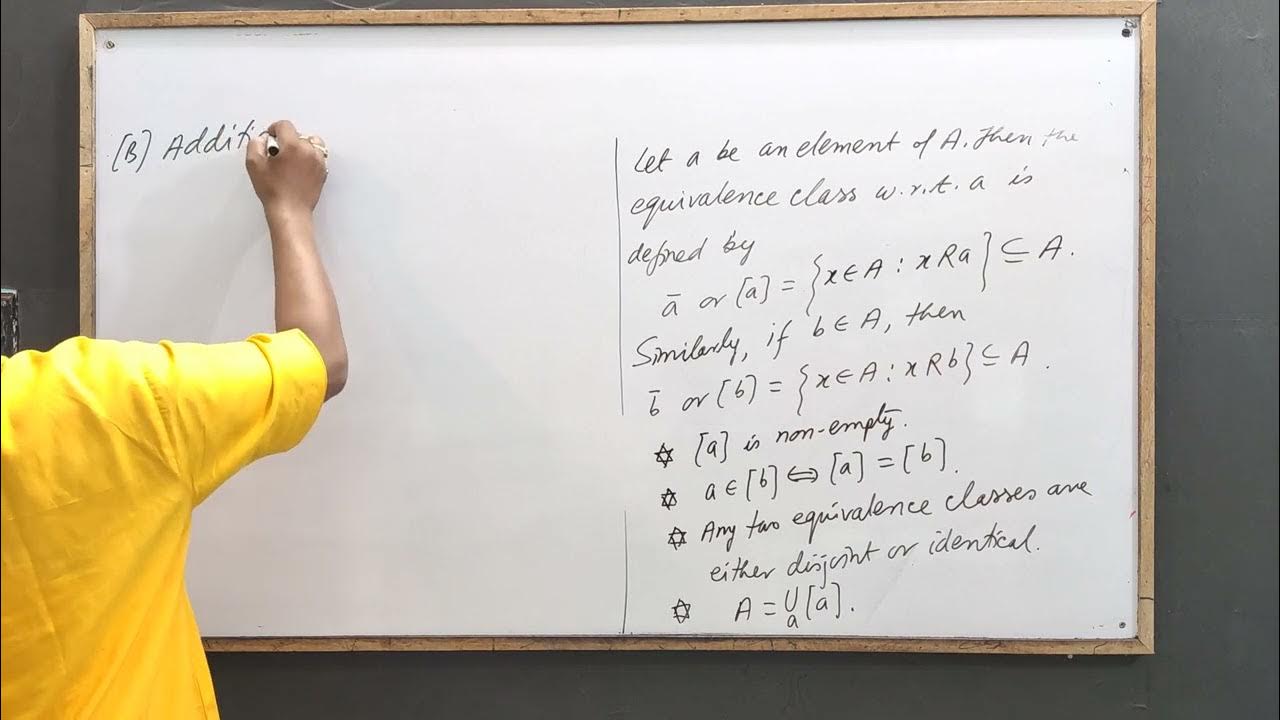 (B) Additi
Let a be an element of A. Then the
equivalence class w.r.t. a is
defined by
ā or [a] = {x ∈ A : x R a} ⊆ A.
Similarly, if b ∈ A, then
b̄ or [b] = {x ∈ A : x R b} ⊆ A.
✡ [a] is non-empty.
✡ a ∈ [b] ⟺ [a] = [b].
✡ Any two equivalence classes are
either disjoint or identical.
✡ A = ∪ₐ [a].